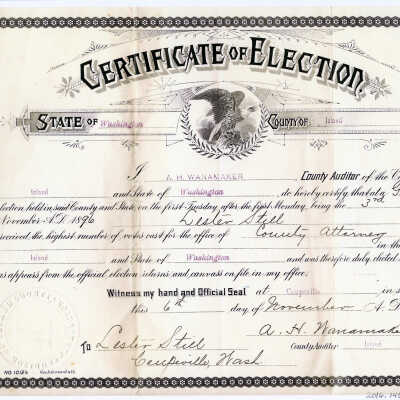 CERTIFICATE OF ELECTION.
STATE OF Washington COUNTY OF Island
I A. H. WANAMAKER County Auditor of the C
Island and State of Washington do hereby certify that at a G
Election held in said County and State on the first Tuesday after the first Monday, being the 3rd
November A.D. 1896 Lester Still
received the highest number of votes cast for the office of County Attorney in the
Island and State of Washington and was therefore duly elected
as appears from the official election returns and canvass on file in my office.
Witness my hand and Official Seal at Coupeville in s
this 6th day of November A.D.
A. H. Wanamake
To Lester Still County Auditor Island
Coupeville, Wash
NO 1024
2016.14